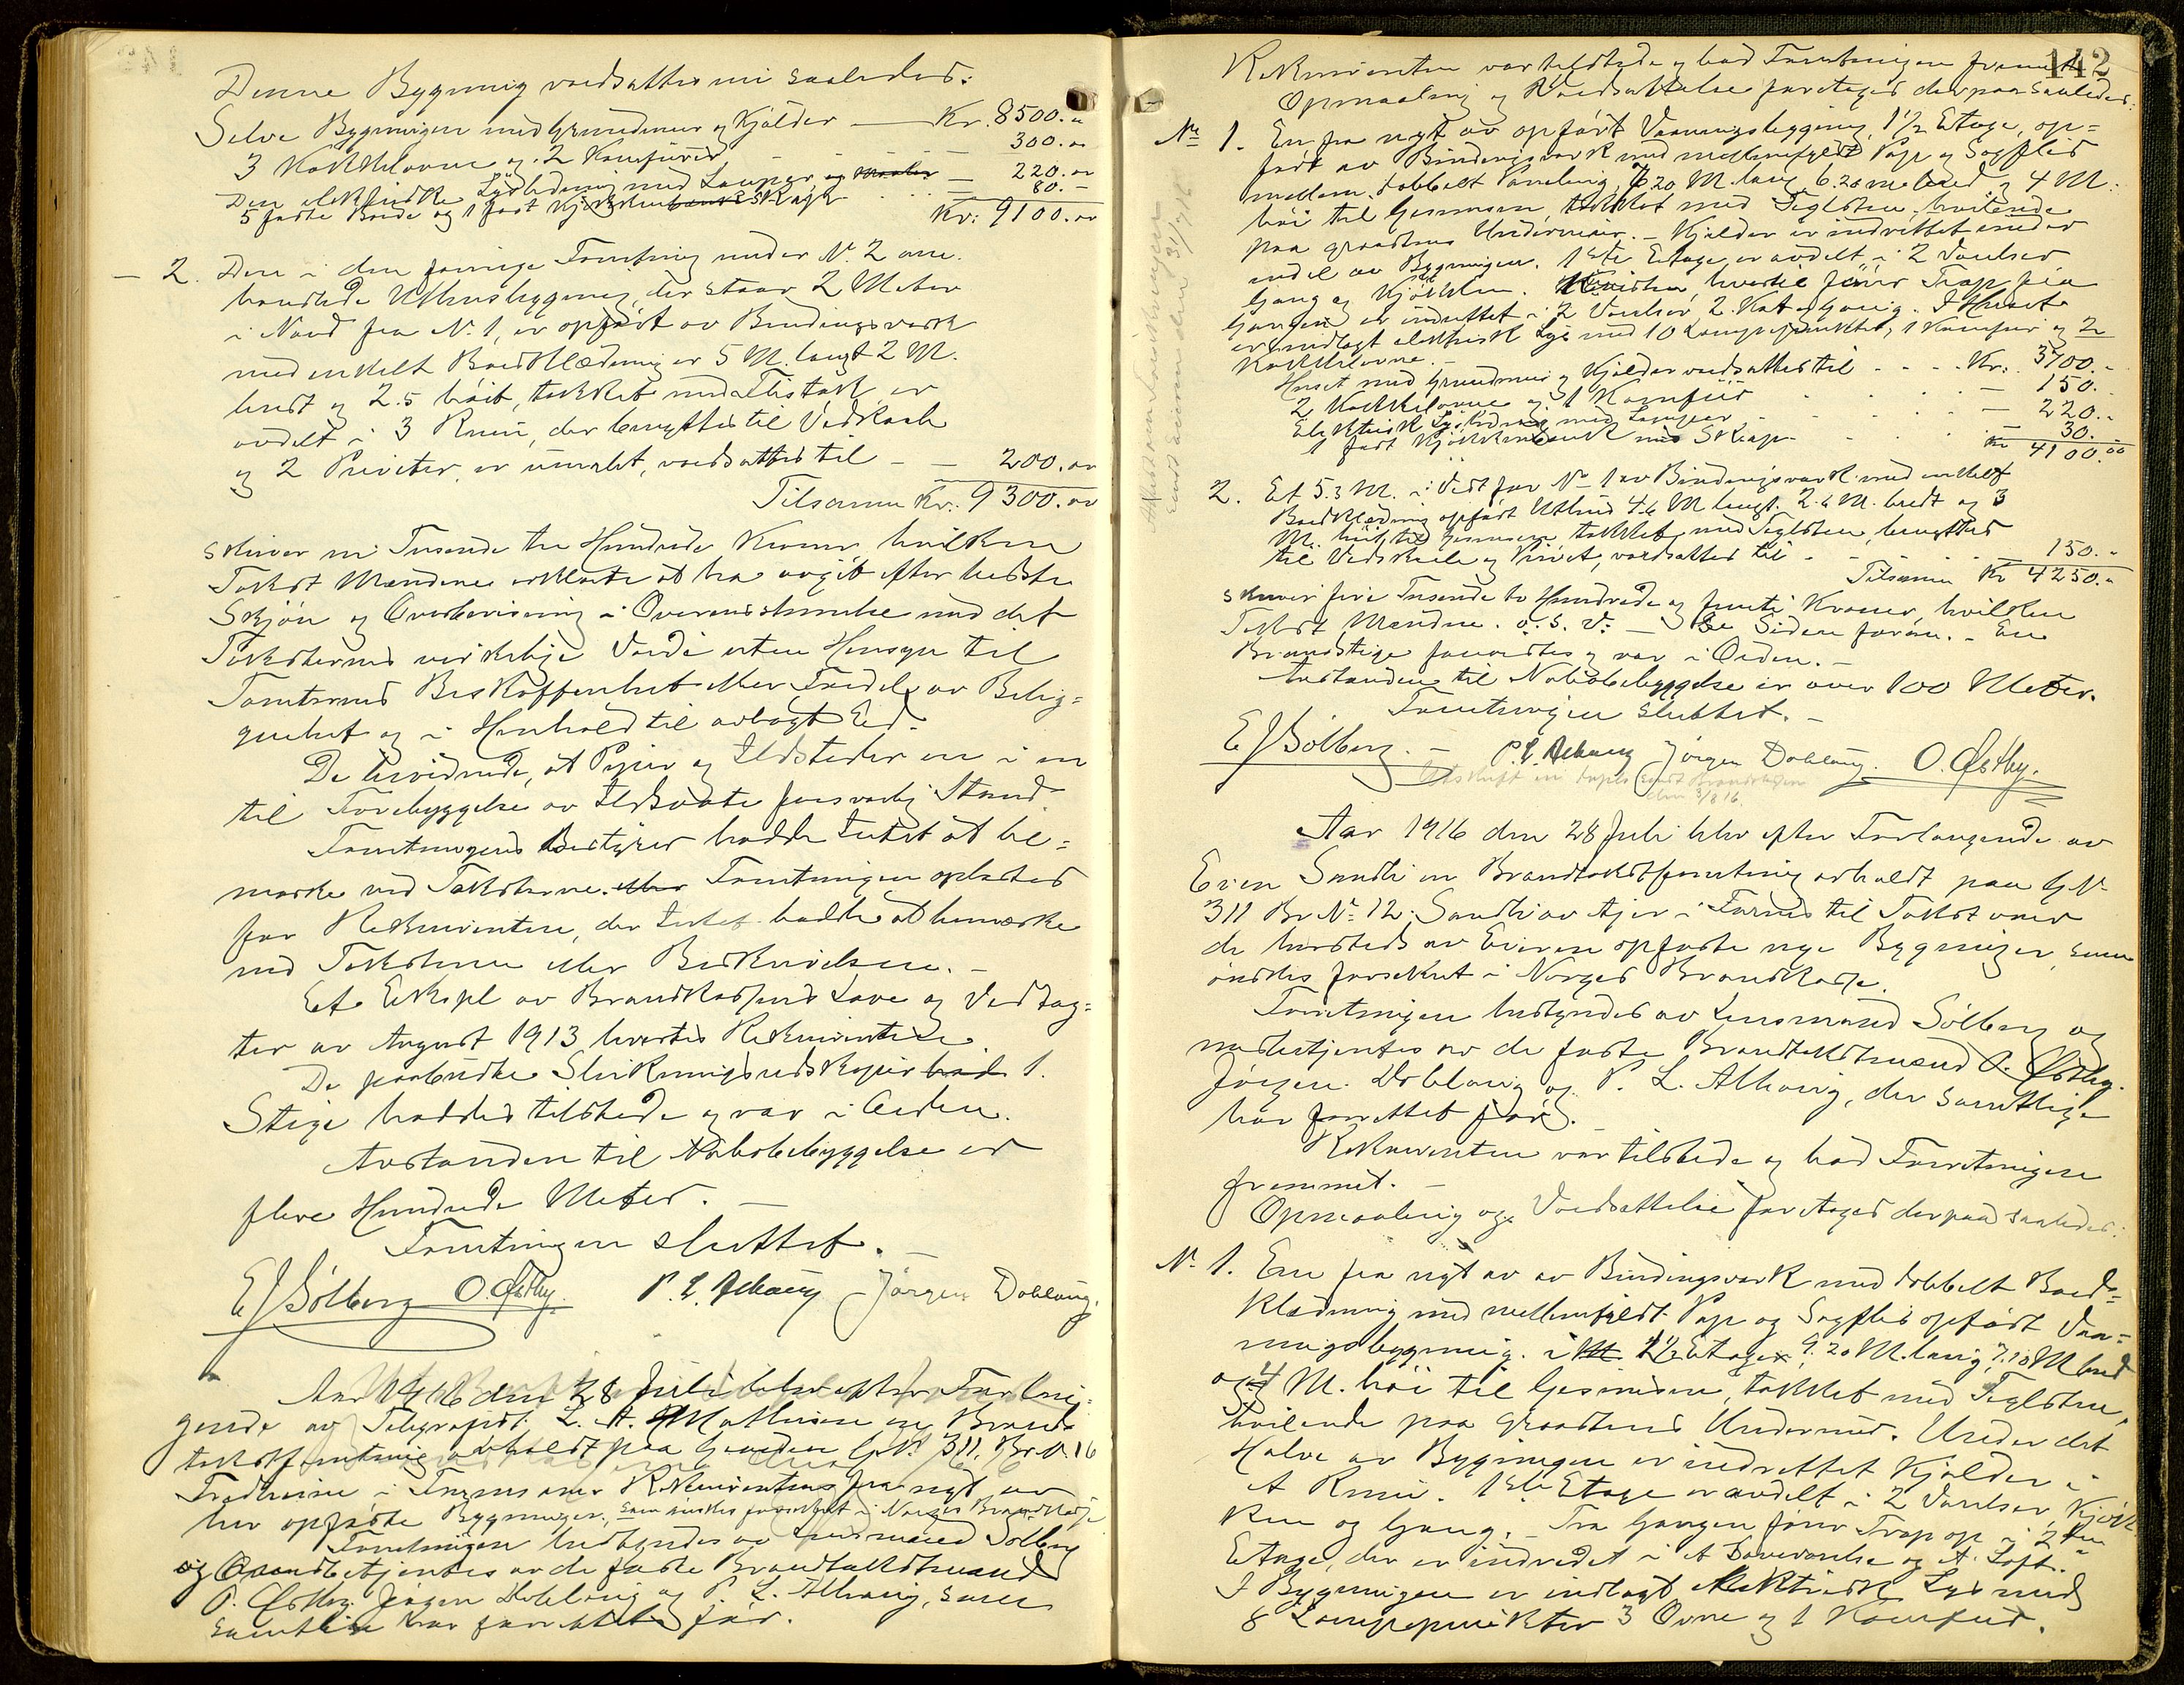 Denne Bygning værdsattes nu saaledes:
Selve Bygningen med Grundmur og Kjælder — Kr. 8500.„
3 Kakkelovne og 2 Komfurer — 300.00
Den elektriske Lysledning med Lamper og Maaler — 220.00
5 faste Borde og 1 fast Kjøkkenbænk Skap — 80.–
Kr: 9100.00
— 2. Den i den forrige Forretning under No. 2 om-
handlede Uthusbygning, der staar 2 Meter
i Nord fra No. 1, er opført av Bindingsverk
med enkelt Bordklædning er 5 M. langt 2 M.
bredt og 2.5 høit, takket med Flistak er
avdelt i 3 Rum, der benyttes til Vedskaale
og 2 Priveter, er umalt, værdsattes til — — 200.00
Tilsammen Kr. 9300.00
skriver ni Tusende tre Hundrede Kroner, hvilken
Takst Mændene erklærte at ha avgit efter bedste
Skjøn og Overbevisning i Overensstemmelse med det
Taksternes virkelige Værdi uten Hensyn til
Tomternes Beskaffenhet eller Fordele av Belig=
genhet og i Henhold til avlagt Ed.
De bevidnede, at Piper og Ildsteder er i en
til Forebyggelse av Ildsvaate forsvarlig Stand.
Forretningens Bestyrer hadde Intet at be=
mærke ved Taksterne. eller Forretningen oplæstes
for Rekvirenten, der Intet hadde at bemærke
ved Taksterne eller Beskrivelsen. –
Et Ekspl av Brandkassens Love og Vedtæg=
ter av August 1913 havdes Rekvirenten.
De paabudte Slukningsredskaper hvad 1.
Stige haddes tilstede og var i Orden.
Avstanden til Nabobebyggelse er
flere Hundrede Meter. —
Forretningen sluttet. —
E J Sölberg O. Østby. P. L. Alhaug Jörgen Doblaug.
Aar 1916 den 28 Juli blev efter Forlan-
gende av Telegrafist L. A. Mathisen en Brand-
takstforretning avholdt paa Gaarden G.No 311, Br.No. 16
Fredheim i Furnes over Rekvirentens fra nyt av
her opførte Bygninger, som ønskes forsikret i Norges Brandkasse
Forretningen bestyredes av Lensmand Sölberg
og Brandbetjentes av de faste Brandtakstmænd
O. Østby, Jörgen Doblaug og P. L. Alhaug, som
samtlige har forrettet før.
142
Rekvirenten var tilstede og bad Forretningen fremmet.
Opmaaling og Værdsættelse foretages derpaa saaledes:
No 1. En fra nyt av opført Vaaningsbygning, 1½ Etage, op=
ført av Bindingsverk med mellemfyldt Pap og Sagflis
mellem dobbelt Paneling, 8.20 M. lang 6.20 m bred og 4 M.
høi til Gesimsen, takket med Teglsten, hvilende
paa graastens Undermur. – Kjælder er indrettet under
endel av Bygningen. 1ste Etage er avdelt i 2 Værelser
Gang og Kjøkken. Kvisten, hvortil fører Trap fra
Gangen er indrettet i 2 Værelser, 2 Kot og Gang. I Huset
er indlagt elektrisk Lys med 10 Lampepunkter, 1 Komfur og 2
Kakkelovne. –
Huset med Grundmur og Kjælder værdsattes til – – – Kr. 3700.„
2 Kakkelovne og 1 Komfur – 150.
Elektrisk Lysledning med Lamper – 220.„
1 fast Kjøkkenbænk med Skap – 30.–
Kr 4100.00
2. Et 5.3 M. i Vest for No 1 av Bindingsverk med enkelt
Bordklædning opført Uthus 4.6 M langt. 2.6 M. bredt og 3
M. høit til Gesimsen, takket med Teglsten, benyttes
til Vedskaale og Privet, værdsattes til – – – – 150.„
Tilsammen Kr 4250.„
skriver fire Tusende to Hundrede og femti Kroner, hvilken
Takst Mændene. o. s. v. — Se Siden foran. – En
Brandstige forevistes og var i Orden. –
Avstanden til Nabobebyggelse er over 100 Meter.
Forretningen sluttet. –
E J Sölberg. – P. L. Alhaug Jörgen Doblaug. O. Østby.
Utskrift in duplo sendt Brandkassen
den 3/8 16.
Aar 1916 den 28 Juli blev efter Forlangende av
Even Sandli en Brandtakstforretning avholdt paa G.No
311 Br.No 12. Sandli av Ajer i Furnes til Takst over
de hersteds av Eieren opførte nye Bygninger, som
ønskes forsikret i Norges Brandkasse.
Forretningen bestyredes av Lensmand Sölberg og
medbetjentes av de faste Brandtakstmænd O. Østby.
Jörgen Doblaug og P. L. Alhaug, der samtlige
har forrettet før. –
Rekvirenten var tilstede og bad Forretningen
fremmet. –
Opmaaling og Værdsættelse foretages derpaa saaledes:
No 1. En fra nyt av av Bindingsverk med dobbelt Bord=
klædning med mellemfyldt Pap og Sagflis opført Vaa=
ningsbygning. i 1½ Etager 9.20 M. lang, 7.10 M bred
og 4 M. høi til Gesimsen, takket med Teglsten,
hvilende paa Graastens Undermur. Under det
Halve av Bygningen er indrettet Kjælder i
et Rum. 1ste Etage er avdelt i 2 Værelser, Kjøk-
ken og Gang. – Fra Gangen fører Trap op i 2den
Etage, der er indredet i et Soveværelse og et Loft.
I Bygningen er indlagt elektrisk Lys med
8 Lampepunkter 3 Ovne og 1 Komfur.